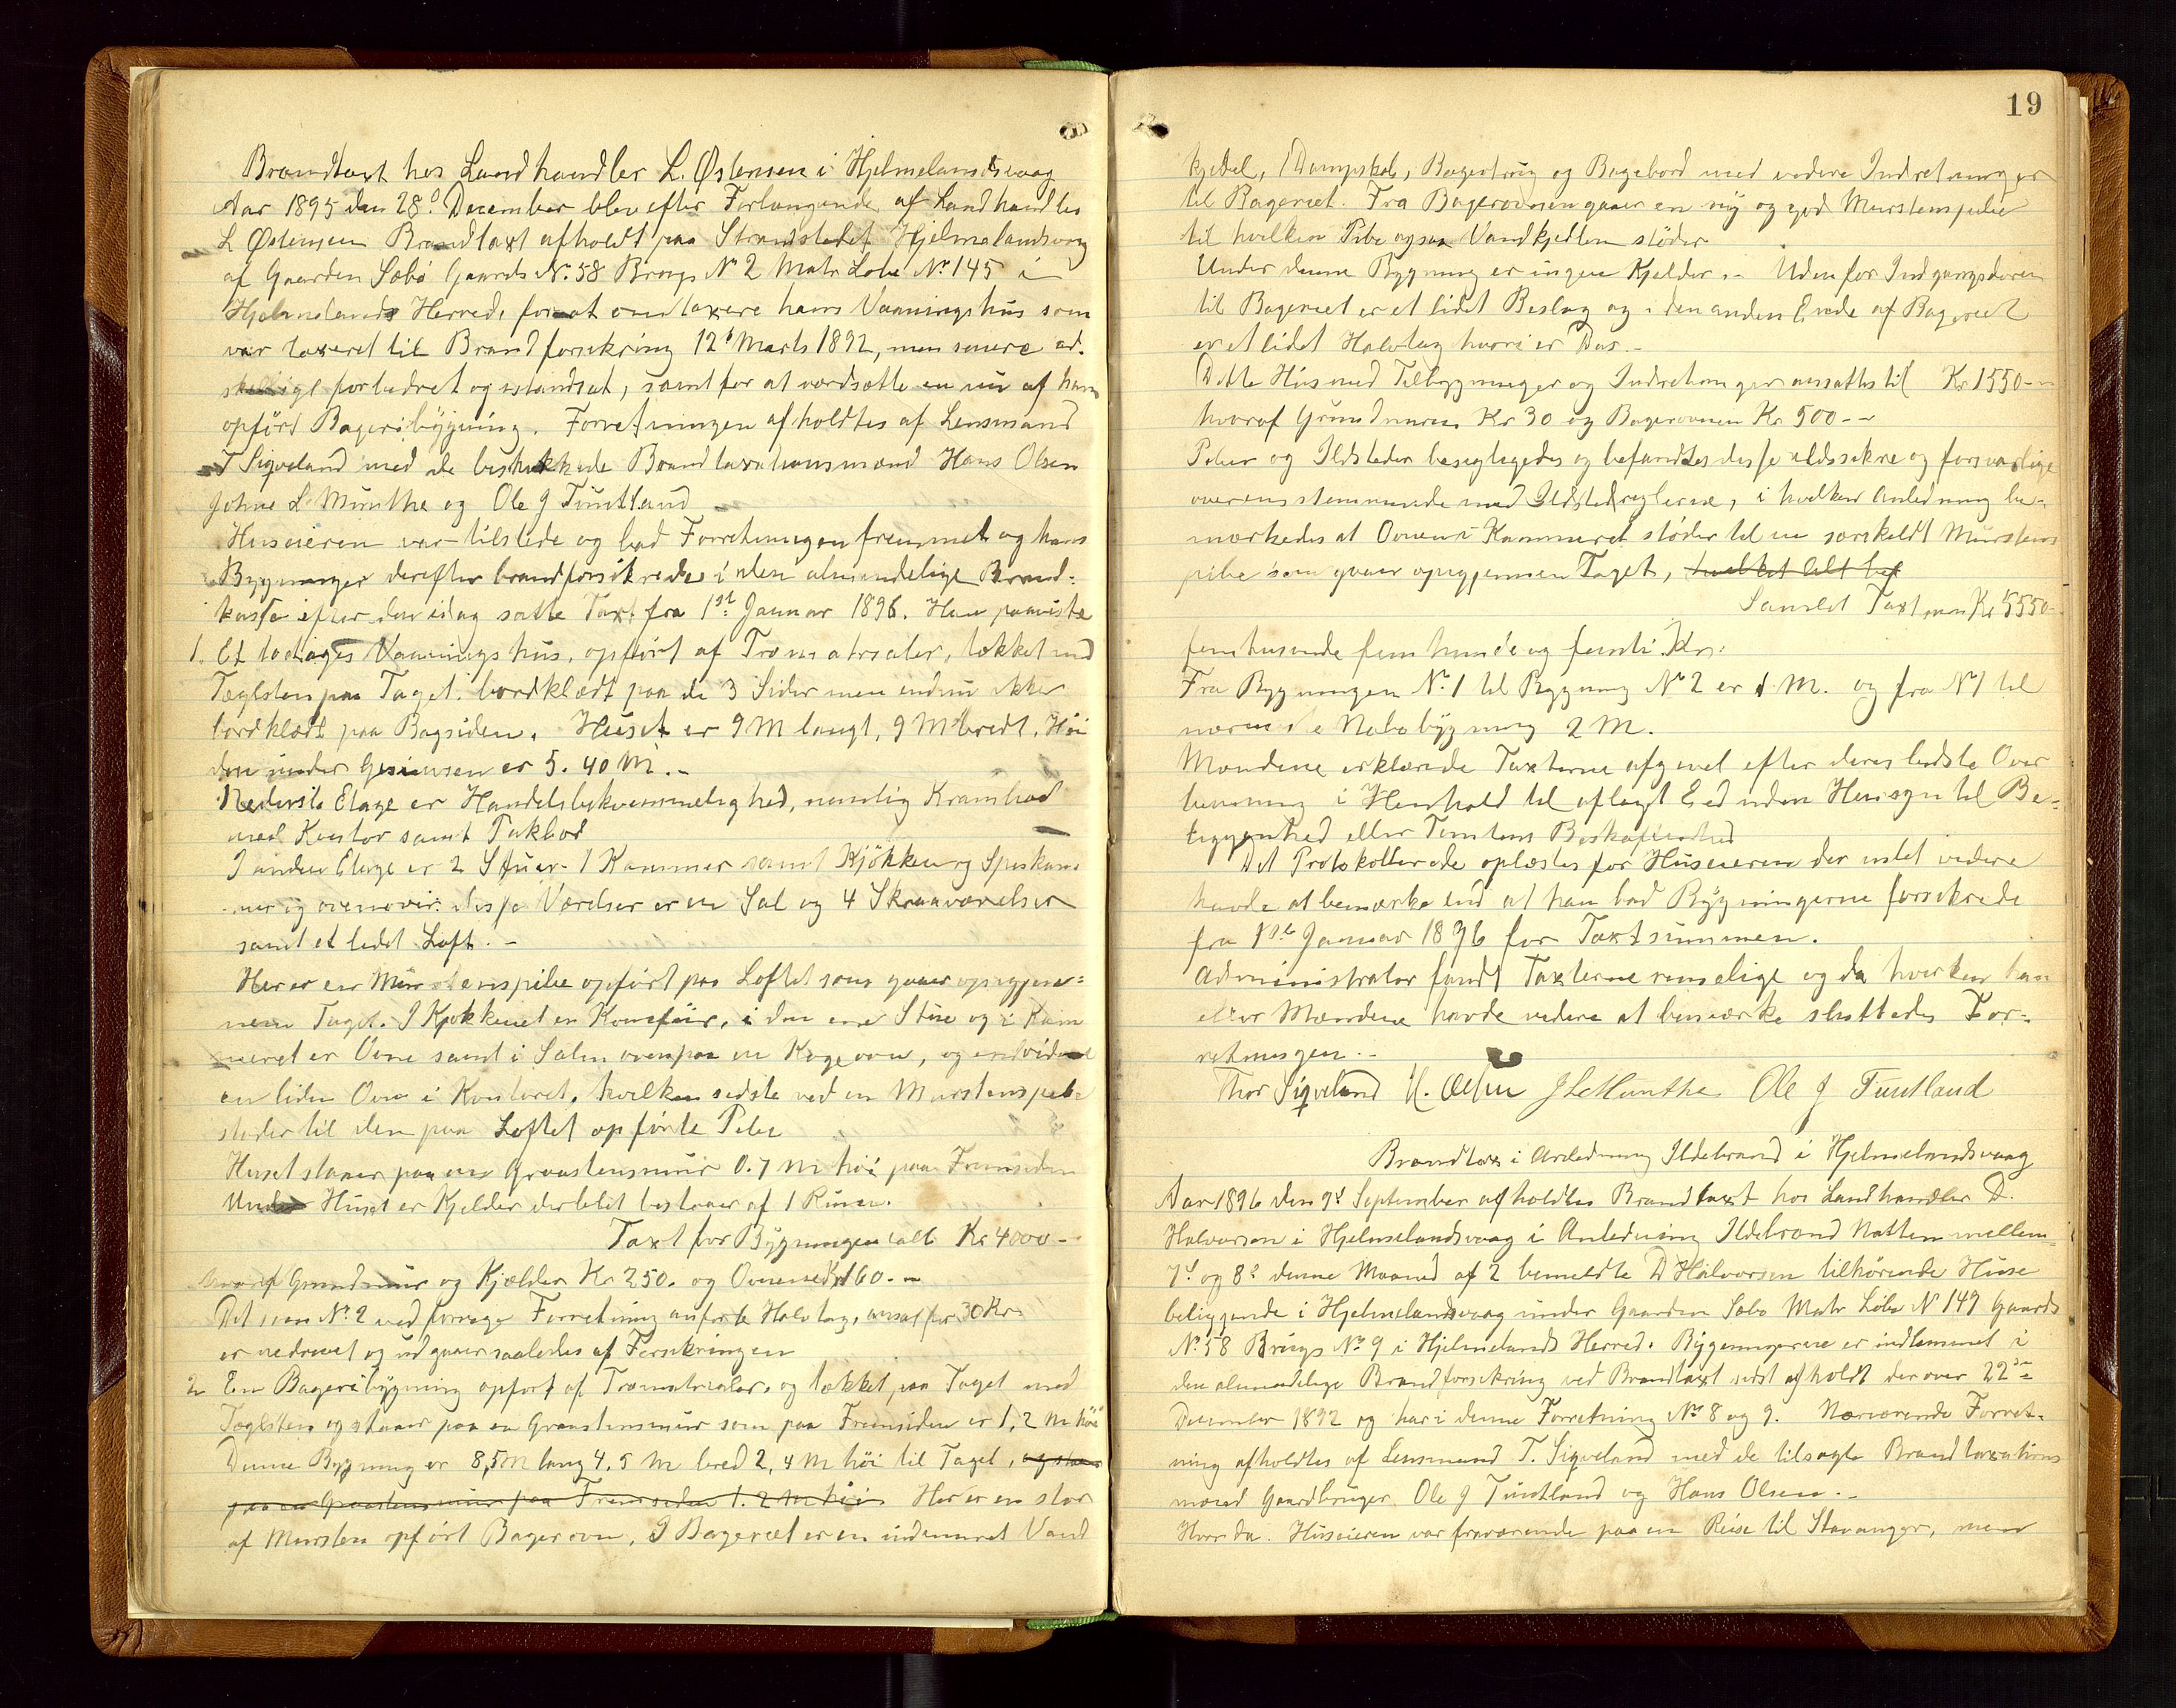 Brandtaxt hos Landhandler L. Østensen i Hjelmelandsvaag
Aar 1895 den 28d. December blev efter Forlangende af Landhandler
L Østensen Brandtaxt afholdt paa Strandstedet Hjelmelandsvaag
af Gaarden Sæbø Gaards No. 58 Brugs No 2 Matr Løbe No. 145 i
Hjelmelands Herred, for at omtaxere hans Vaaningshus som
var taxeret til Brandforsikring 12te Marts 1892, men senere ad-
skilligt forbedret og istandsat, samt for at værdsætte en ny af ham
opført Bageribygning. Forretningen afholdtes af Lensmand
T Sigveland med de beskikkede Brandtaxationsmænd Hans Olsen
Johne L Munthe og Ole J Tuntland
Huseieren var tilstede og bad Forretningen fremmet og hans
Bygninger derefter brandforsikrede i den almindelige Brand-
kasse efter den idag satte Taxt fra 1st Januar 1896. Han paaviste
1. Et toetages Vaaningshus, opført af Træmaterialer, tækket med
Tæglsten paa Taget, bordklædt paa de 3 Sider men endnu ikke
bordklædt paa Bagsiden. Huset er 9 M langt, 9 M bredt. Høi
den under Gesimsen er 5.40 M. -
Nederste Etage er Handelsbekvemmelighed, nemlig Krambod
med Kontor samt Pakbod
I anden Etage er 2 Stuer - 1 Kammer samt Kjøkken og Speskam
mer og ovenover disse Værelser er en Sal og 4 Skraaværelser
samt et lidet Loft. -
Her er en Murstenspibe opført paa Loftet som gaaer opigjen-
nem Taget. I Kjøkkenet en Komfur, i den ene Stue og i Kam
meret er Ovne samt i Salen ovenpaa en Kogeovn, og endvidere
en liden Ovn i Kontoret, hvilken sidste ved en Murstenspibe
støder til den paa Loftet opførte Pibe
Huset staaer paa en Graastensmur 0.7 M høi paa Fremsiden
Under Huset er Kjelder der blot bestaaer af 1 Rum.
Taxt for Bygningen ialt Kr 4000 -
hvoraf Grundmur og Kjælder Kr 250. og Ovnene Kr 160. -
Det som No. 2 ved forrige Forretning anførte Halvtag, ansat for 30 Kr
er nedrevet og udgaaer saaledes af Forsikringen
2 En Bageribygning opført af Træmaterialer, og tækket paa Taget med
Tæglsten og staaer paa en Graastensmur som paa Fremsiden er 1,2 M høi
Denne Bygning er 8,5 M lang 4.5 M bred 2,4 M høi til Taget, og staaer
paa en Graastensmur paa Fremsiden 1.2 M høi Her er en stor
af Mursten opført Bagerovn. I Bageriet er en indemuret Vand
19
kjedel, 1 Dampskab, Bagertrug og Bagebord med videre Indretninger
til Bageriet. Fra Bagerovnen gaaer en ny og god Murstenspibe
til hvilken Pibe ogsaa Vandkjedlen støder
Under denne Bygning er ingen Kjelder. - Udenfor Indgangsdøren
til Bageriet er et lidet Beslag og i den anden Ende af Bageriet
er et lidet Halvtag hvori er Das. -
Dette Hus med Tilbygninger og Indretninger ansattes til Kr 1550 -
hvoraf Grundmuren Kr 30 og Bagerovnen Kr 500 -
Piber og Ildsteder besigtigedes og befandtes disse ildssikre og forsvarlige
overensstemmende med Ildstedreglerne, i hvilken Anledning be-
mærkedes at Ovnen i Kammeret støder til en særskildt Murstens
pibe som gaaer opigjennem Taget, hvilket Alt bef
Samlet Taxt man Kr 5550 -
femtusinde femhundre og femti Kr.
Fra Bygningen No. 1 til Bygning No 2 er 1 M. og fra No 1 til
nærmeste Nabobygning 2 M.
Mændene erklærede Taxterne afgivet efter deres bedste Over
bevisning i Henhold til aflagt Eed uden Hensyn til Be-
liggenhed eller Tomtens Beskaffenhed
Det Protokollerede oplæstes for Huseieren der intet videre
havde at bemærke end at han bad Bygningerne forsikrede
fra 1ste Januar 1896 for Taxtsummen.
Administrator fandt Taxterne rimelige og da hverken han
eller Mændene havde videre at bemærke sluttedes For-
retningen. -
Thor Sigveland H. Olsen J L Munthe Ole J Tuntland
Brandtax i Anledning Ildebrand i Hjelmelandsvaag
Aar 1896 den 9d September afholdtes Brandtaxt hos Landhandler D.
Halvorsen i Hjelmelandsvaag i Anledning Ildebrand Natten mellem
7d og 8d denne Maaned af 2 bemeldte D Halvorsen tilhørende Huse
beliggende i Hjelmelandsvaag under Gaarden Sæbø Matr Løbe N 149 Gaards
No. 58 Brugs No 9 i Hjelmelands Herred. Bygningerne er indlemmet i
den almindelige Brandforsikring ved Brandtaxt sidst afholdt derover 22de
December 1892 og har i denne Forretning No 8 og 9. Nærværende Forret-
ning afholdtes af Lensmand T. Sigveland med de tilsagte Brandtaxations
mænd Gaardbruger Ole J Tuntland og Hans Olsen. -
Hvor da. Huseieren var fraværende paa en Reise til Stavanger, men